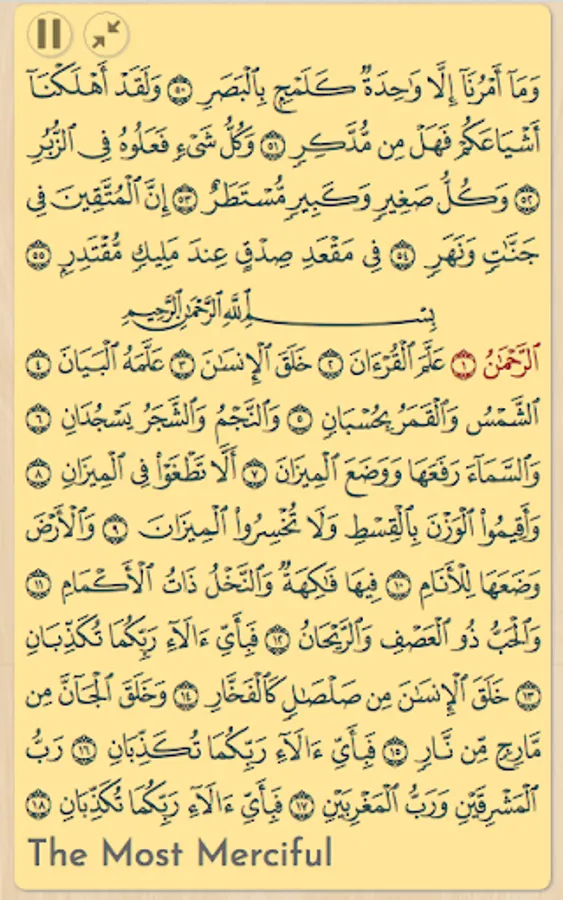 وَمَآ أَمْرُنَآ إِلَّا وَٰحِدَةٌ كَلَمْحٍۭ بِٱلْبَصَرِ ٥٠ وَلَقَدْ أَهْلَكْنَآ
أَشْيَاعَكُمْ فَهَلْ مِن مُّدَّكِرٍ ٥١ وَكُلُّ شَىْءٍ فَعَلُوهُ فِى ٱلزُّبُرِ
٥٢ وَكُلُّ صَغِيرٍ وَكَبِيرٍ مُّسْتَطَرٌ ٥٣ إِنَّ ٱلْمُتَّقِينَ فِى
جَنَّٰتٍ وَنَهَرٍ ٥٤ فِى مَقْعَدِ صِدْقٍ عِندَ مَلِيكٍ مُّقْتَدِرٍۭ ٥٥
بِسْمِ ٱللَّهِ ٱلرَّحْمَٰنِ ٱلرَّحِيمِ
ٱلرَّحْمَٰنُ ١ عَلَّمَ ٱلْقُرْءَانَ ٢ خَلَقَ ٱلْإِنسَٰنَ ٣ عَلَّمَهُ ٱلْبَيَانَ ٤
ٱلشَّمْسُ وَٱلْقَمَرُ بِحُسْبَانٍ ٥ وَٱلنَّجْمُ وَٱلشَّجَرُ يَسْجُدَانِ ٦
وَٱلسَّمَآءَ رَفَعَهَا وَوَضَعَ ٱلْمِيزَانَ ٧ أَلَّا تَطْغَوْا۟ فِى ٱلْمِيزَانِ ٨
وَأَقِيمُوا۟ ٱلْوَزْنَ بِٱلْقِسْطِ وَلَا تُخْسِرُوا۟ ٱلْمِيزَانَ ٩ وَٱلْأَرْضَ
وَضَعَهَا لِلْأَنَامِ ١٠ فِيهَا فَٰكِهَةٌ وَٱلنَّخْلُ ذَاتُ ٱلْأَكْمَامِ ١١
وَٱلْحَبُّ ذُو ٱلْعَصْفِ وَٱلرَّيْحَانُ ١٢ فَبِأَىِّ ءَالَآءِ رَبِّكُمَا تُكَذِّبَانِ
١٣ خَلَقَ ٱلْإِنسَٰنَ مِن صَلْصَٰلٍ كَٱلْفَخَّارِ ١٤ وَخَلَقَ ٱلْجَآنَّ مِن
مَّارِجٍ مِّن نَّارٍ ١٥ فَبِأَىِّ ءَالَآءِ رَبِّكُمَا تُكَذِّبَانِ ١٦ رَبُّ
ٱلْمَشْرِقَيْنِ وَرَبُّ ٱلْمَغْرِبَيْنِ ١٧ فَبِأَىِّ ءَالَآءِ رَبِّكُمَا تُكَذِّبَانِ ١٨
The Most Merciful